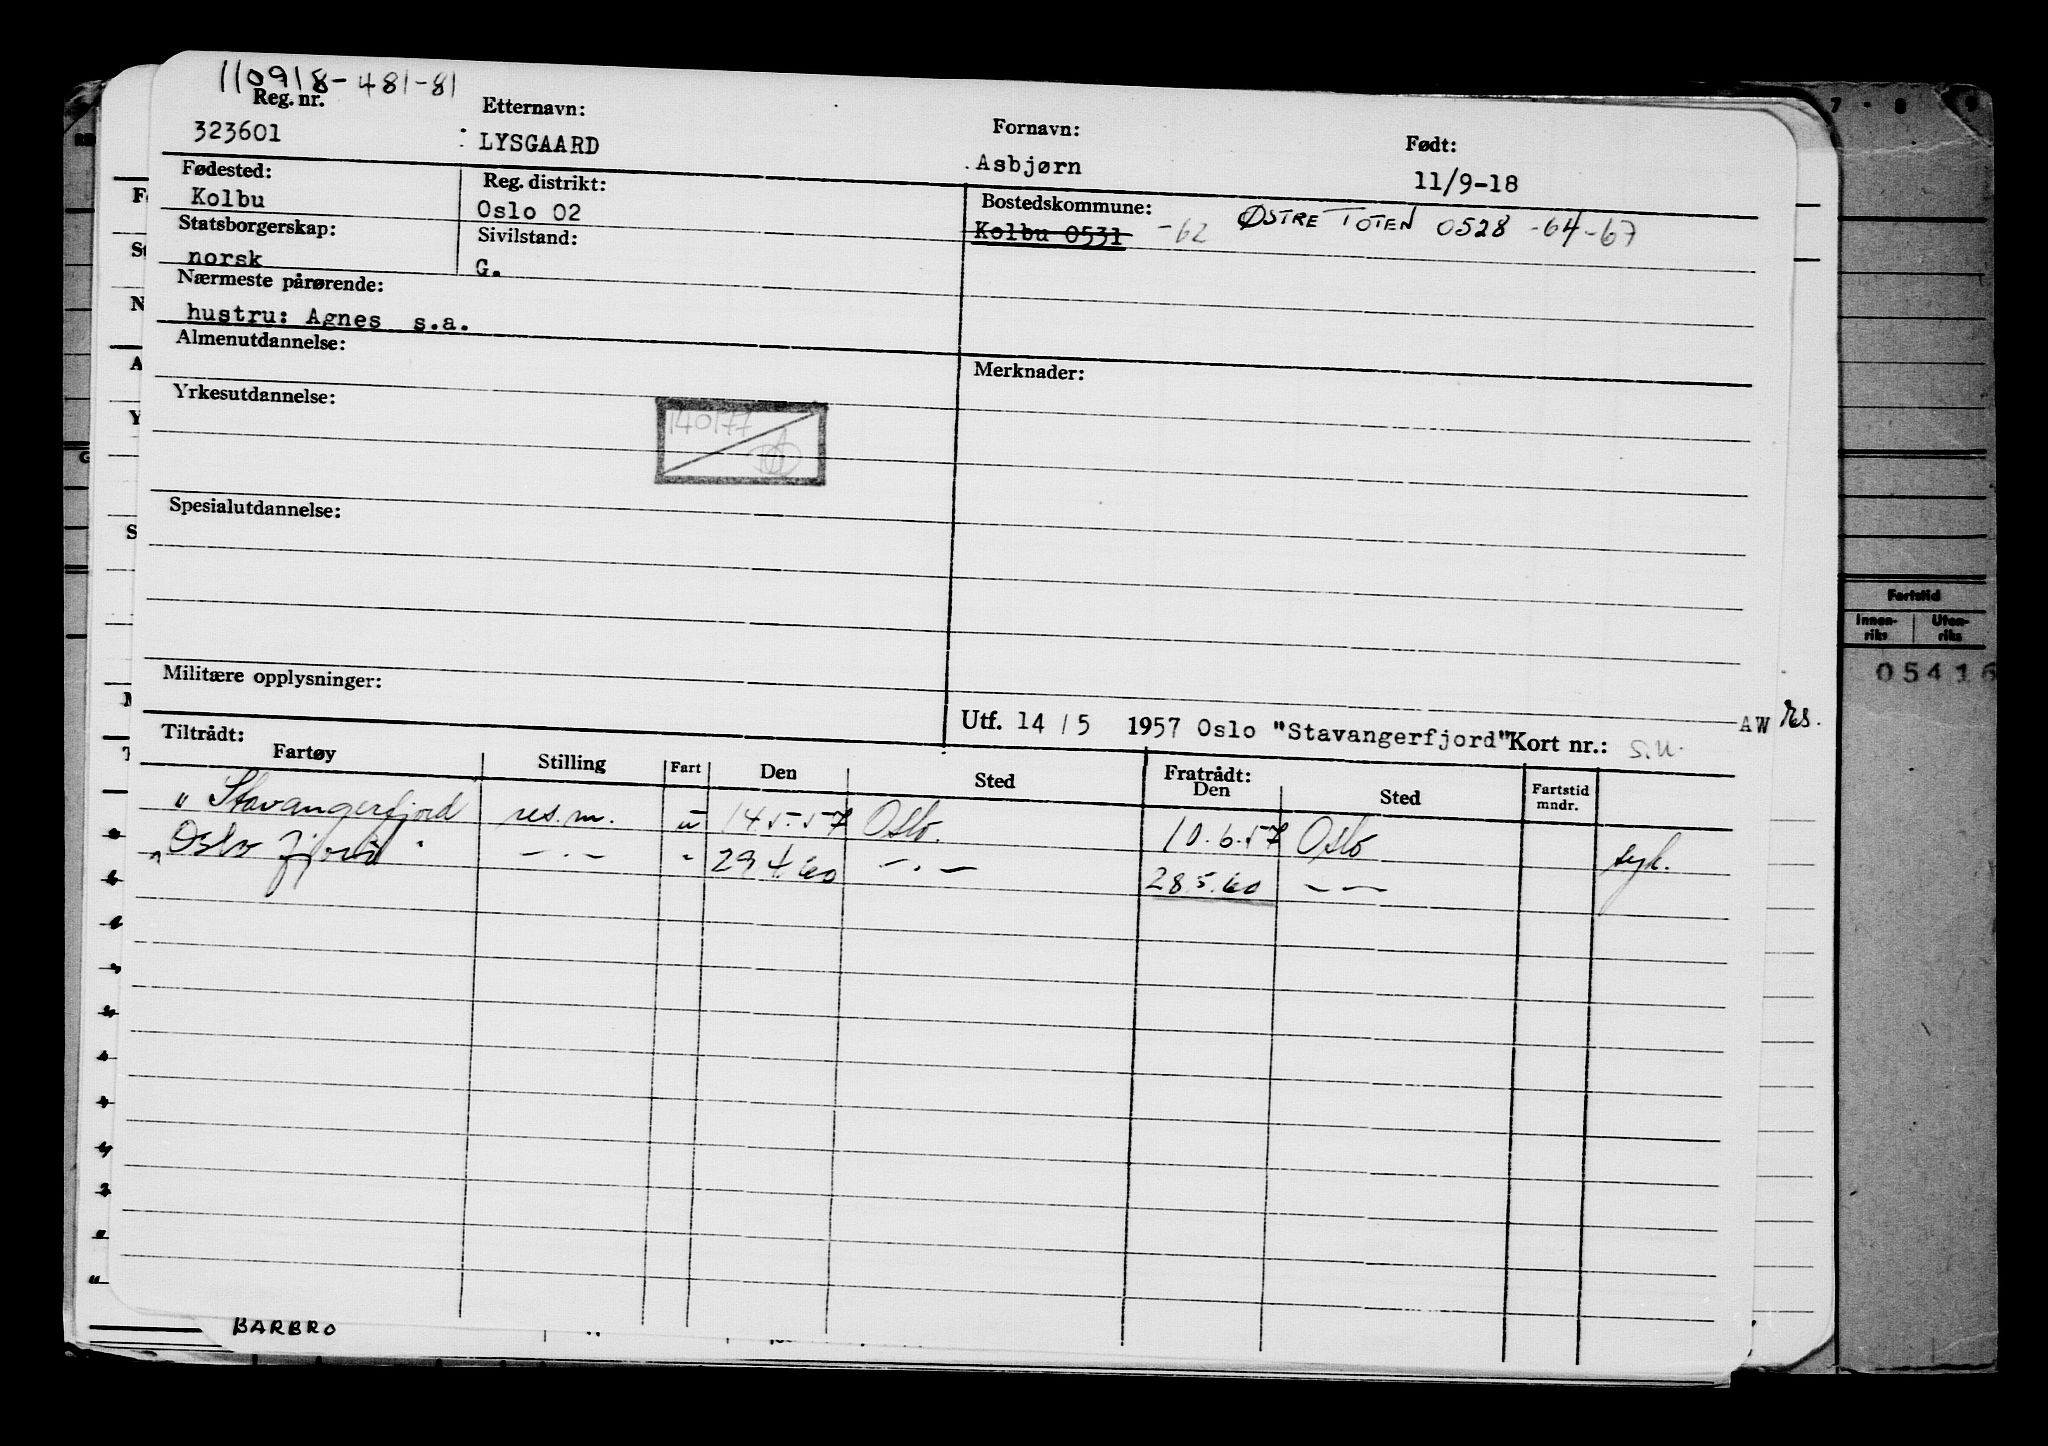 110918-481-81
Reg. nr. Etternavn: Fornavn: Født:
323601 LYSGAARD Asbjørn 11/9-18
Fødested: Reg. distrikt: Bostedskommune:
Kolbu Oslo 02 Kolbu 0531 -62 ØSTRE TOTEN 0528 -64-67
Statsborgerskap: Sivilstand:
norsk G.
Nærmeste pårørende:
hustru: Agnes s.a.
Almenutdannelse: Merknader:
Yrkesutdannelse:
140177
Spesialutdannelse:
Militære opplysninger:
Utf. 14 / 5 1957 Oslo "Stavangerfjord" Kort nr.: S.U. AW
Tiltrådt: Fratrådt:
Fartøy Stilling Fart Den Sted Den Sted Fartstid mndr.
" Stavangerfjord res.m. u 14.5.57 Oslo. 10.6.57 Oslo syk.
"Oslofjord" —.— " 29.4.60 —.— 28.5.60 — —
BARBRO
7 - 8 9
Fartstid
Innen-riks Uten-riks
05416